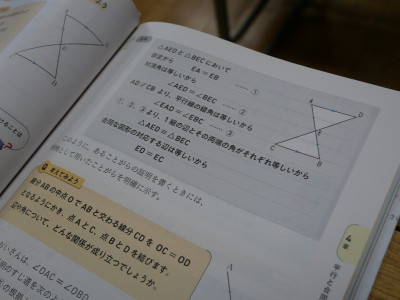 △AEDと△BECにおいて
仮定から EA=EB …… ①
対頂角は等しいから
∠AED=∠BEC …… ②
AD//CBより、平行線の錯角は等しいから
∠EAD=∠EBC …… ③
①、②、③より、1組の辺とその両端の角がそれぞれ等しいから
△AED≡△BEC
合同な図形の対応する辺は等しいから
ED=EC
A
D
E
C
B
このように、あることがらの証明を書くときには、
根拠として用いたことがらを明確に示す。
考えてみよう
線分ABの中点OでABと交わる線分CDを OC=OD
となるようにかき、点AとC、点BとDを結びます。
辺や角について、どんな関係が成り立つでしょうか。
さんは、∠OAC=∠OBD
4章
平行と合同
A